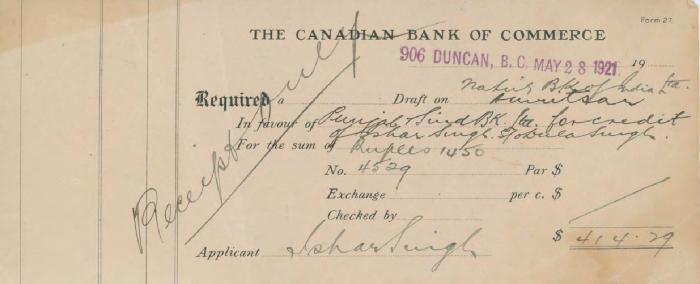 Form 27
THE CANADIAN BANK OF COMMERCE
906 DUNCAN, B. C. MAY 28 1921 19
Native Bk of India Ltd.
Required a Draft on Amritsar
In favour of Punjab & Sind Bk. Ltd. for credit
of Ishar Singh S/o Bula Singh.
For the sum of Rupees 1450
No. 4529 Par $
Exchange per c. $
Checked by
Applicant Ishar Singh $ 414.29
Receipt Only